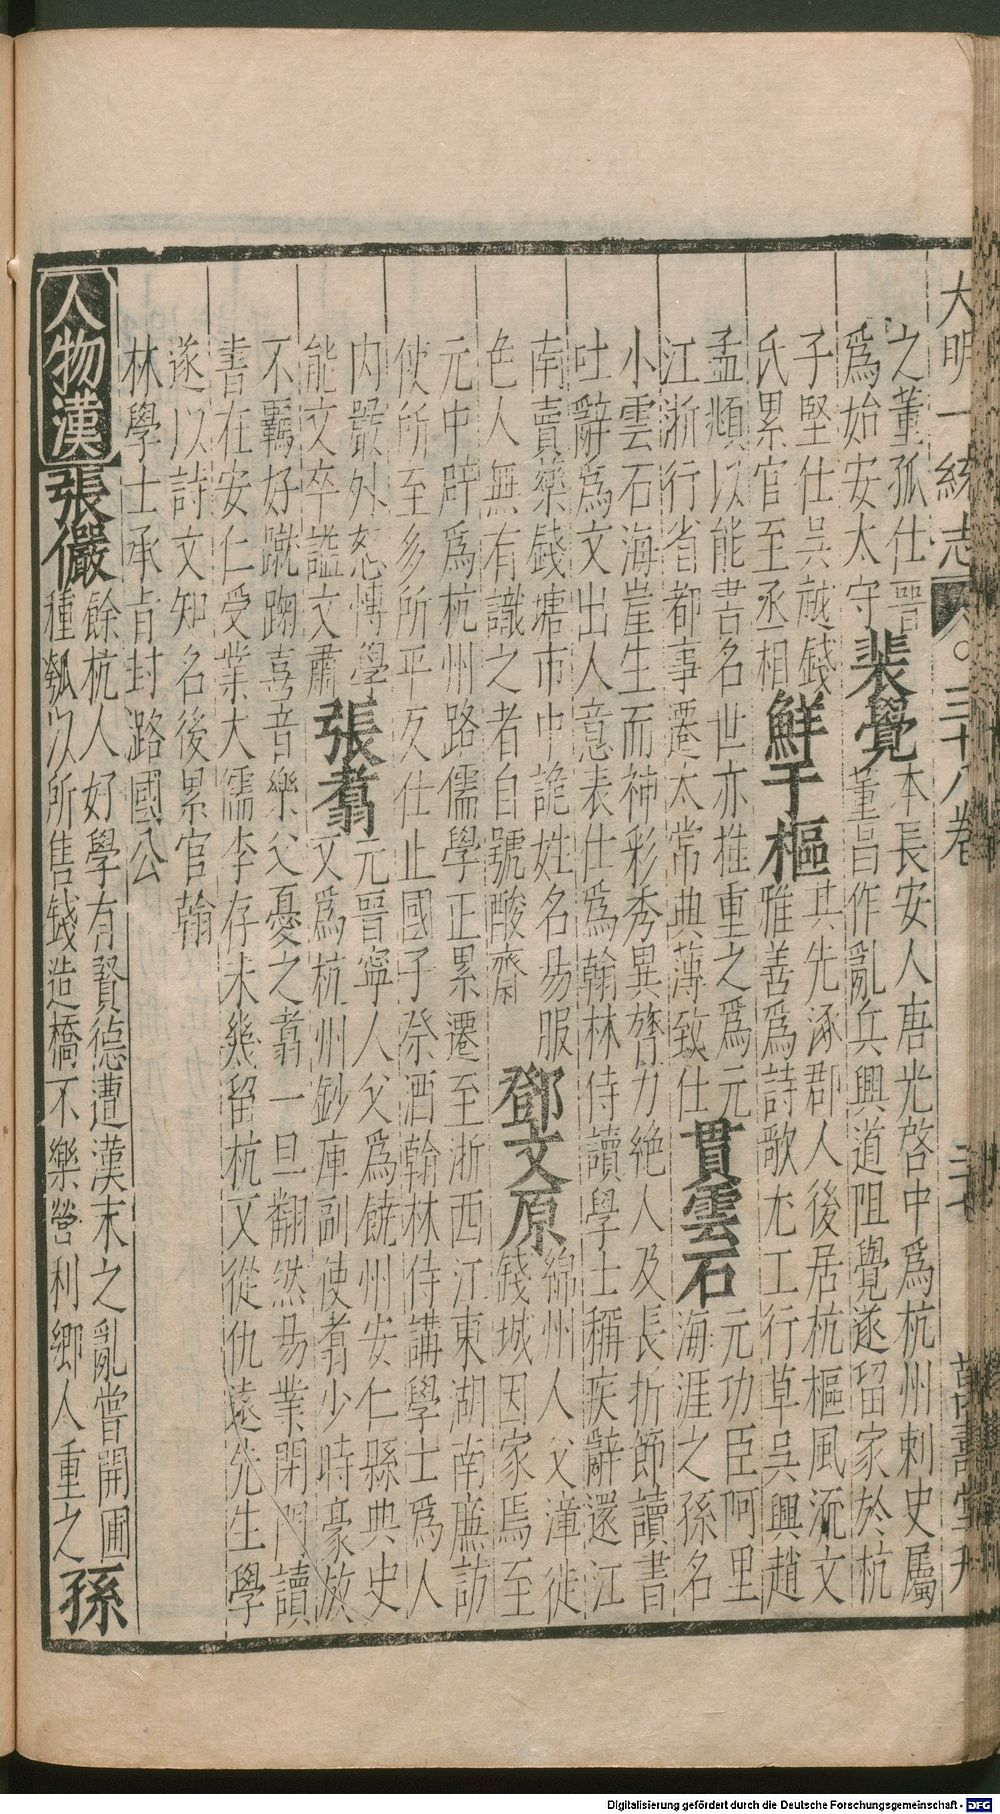 大明一統志 三十八卷 三七 萬壽堂刊
之董孤仕晉
爲始安太守
裴覺
本長安人唐光啓中爲杭州刺史屬
董昌作亂兵興道阻覺遂留家於杭
子堅仕吳越錢
氏累官至丞相
鮮于樞
其先涿郡人後居杭樞風流文
雅善爲詩歌尤工行草吳興趙
孟頫以能書名世亦推重之爲元
江浙行省都事遷太常典薄致仕
貫雲石
元功臣阿里
海涯之孫名
小雲石海崖生而神彩秀異膂力絶人及長折節讀書
吐辭爲文出人意表仕爲翰林侍讀學士稱疾辭還江
南賣藥錢塘市中詭姓名易服
色人無有識之者自號酸齋
鄧文原
綿州人父漳徙
錢城因家焉至
元中辟爲杭州路儒學正累遷至浙西江東湖南廉訪
使所至多所平反仕止國子祭酒翰林侍講學士爲人
内嚴外恕愽學
能文卒謚文肅
張翥
元晉寧人父爲饒州安仁縣典史
又爲杭州鈔庫副使翥少時豪放
不羈好蹴踘喜音樂父憂之翥一旦翻然易業閉門讀
書在安仁受業大儒李存未幾留杭又從仇遠先生學
遂以詩文知名後累官翰
林學士承旨封潞國公
人物漢
張儼
餘杭人好學有賢德遭漢末之亂嘗開圃
種瓠以所售錢造橋不樂營利鄉人重之
孫
Digitalisierung gefördert durch die Deutsche Forschungsgemeinschaft - DFG